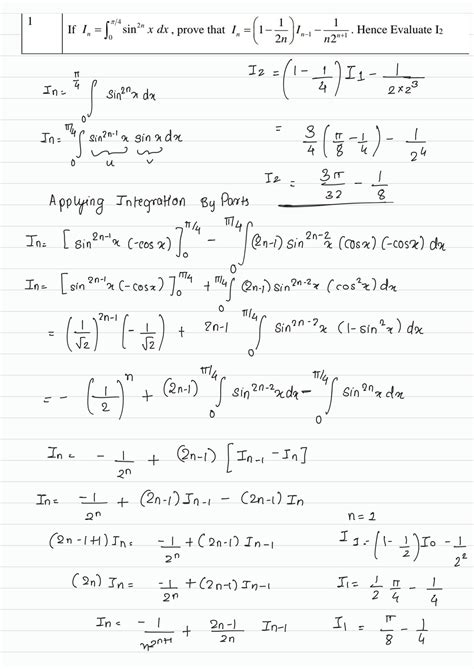 1 If Iₙ = ∫₀^{π/4} sin²ⁿ x dx, prove that Iₙ = (1 − 1/2n) Iₙ₋₁ − 1/(n2ⁿ⁺¹). Hence Evaluate I₂
Iₙ = ∫₀^{π/4} sin²ⁿx dx
Iₙ = ∫₀^{π/4} sin²ⁿ⁻¹x sin x dx
u v
Applying Integration By Parts
I₂ = (1 − 1/4) I₁ − 1/(2×2³)
= 3/4 (π/8 − 1/4) − 1/2⁴
I₂ = 3π/32 − 1/8
Iₙ = [sin²ⁿ⁻¹x (−cos x)]₀^{π/4} − ∫₀^{π/4} (2n−1) sin²ⁿ⁻²x (cos x) (−cos x) dx
Iₙ = [sin²ⁿ⁻¹x (−cos x)]₀^{π/4} + ∫₀^{π/4} (2n−1) sin²ⁿ⁻²x (cos²x) dx
= (1/√2)²ⁿ⁻¹ (−1/√2) + 2n−1 ∫₀^{π/4} sin²ⁿ⁻²x (1−sin²x) dx
= −(1/2)ⁿ + (2n−1) ∫₀^{π/4} sin²ⁿ⁻²x dx − ∫₀^{π/4} sin²ⁿx dx
Iₙ = −1/2ⁿ + (2n−1) [Iₙ₋₁ − Iₙ]
Iₙ = −1/2ⁿ + (2n−1) Iₙ₋₁ − (2n−1) Iₙ
(2n−1+1) Iₙ = −1/2ⁿ + (2n−1) Iₙ₋₁
(2n) Iₙ = −1/2ⁿ + (2n−1) Iₙ₋₁
Iₙ = −1/(n2ⁿ⁺¹) + (2n−1)/2n Iₙ₋₁
n = 1
I₁ = (1 − 1/2) I₀ − 1/2²
I₁ = 1/2 π/4 − 1/4
I₁ = π/8 − 1/4